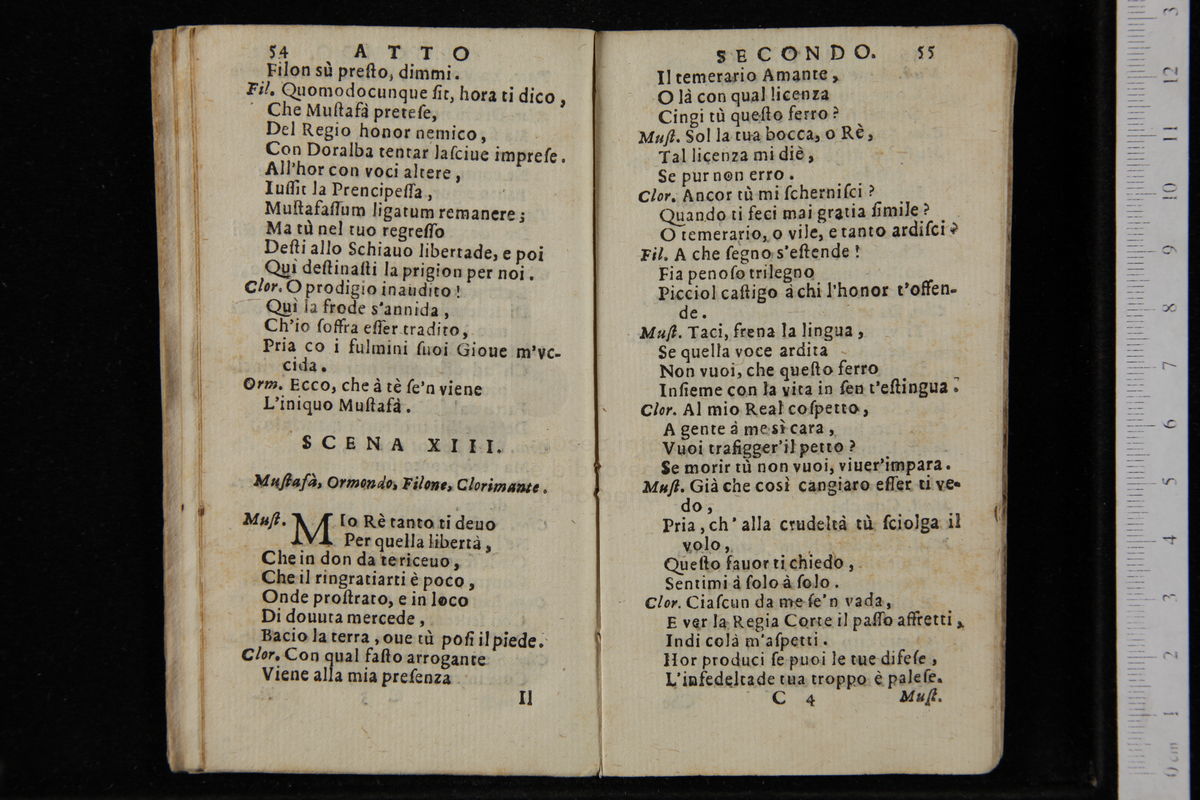 54 ATTO
Filon sù preſto, dimmi.
Fil. Quomodocunque ſit, hora ti dico,
Che Muſtafà preteſe,
Del Regio honor nemico,
Con Doralba tentar laſciue impreſe.
All'hor con voci altere,
Iuſſit la Prencipeſſa,
Muſtafaſſum ligatum remanere;
Ma tù nel tuo regreſſo
Deſti allo Schiauo libertade, e poi
Qui deſtinaſti la prigion per noi.
Clor. O prodigio inaudito!
Quì la frode s'annida,
Ch'io ſoffra eſſer tradito,
Pria co i fulmini ſuoi Gioue m'vc-
cida.
Orm. Ecco, che à tè ſe'n viene
L'iniquo Muſtafà.
SCENA XIII.
Muſtafà, Ormondo, Filone, Clorimante.
Muſt. MIo Rè tanto ti deuo
Per quella libertà,
Che in don da te riceuo,
Che il ringratiarti è poco,
Onde proſtrato, e in loco
Di douuta mercede,
Bacio la terra, oue tù poſi il piede.
Clor. Con qual faſto arrogante
Viene alla mia preſenza
Il
SECONDO. 55
Il temerario Amante,
O là con qual licenza
Cingi tù queſto ferro?
Muſt. Sol la tua bocca, o Rè,
Tal licenza mi diè,
Se pur non erro.
Clor. Ancor tù mi ſcherniſci?
Quando ti feci mai gratia ſimile?
O temerario, o vile, e tanto ardiſci?
Fil. A che ſegno s'eſtende!
Fia penoſo trilegno
Picciol caſtigo à chi l'honor t'offen-
de.
Muſt. Taci, frena la lingua,
Se quella voce ardita
Non vuoi, che queſto ferro
Inſieme con la vita in ſen t'eſtingua.
Clor. Al mio Real coſpetto,
A gente à me sì cara,
Vuoi trafigger'il petto?
Se morir tù non vuoi, viuer'impara.
Muſt. Già che così cangiaro eſſer ti ve-
do,
Pria, ch'alla crudeltà tù ſciolga il
volo,
Queſto fauor ti chiedo,
Sentimi à ſolo à ſolo.
Clor. Ciaſcun da me ſe'n vada,
E ver la Regia Corte il paſſo affretti,
Indi colà m'aſpetti.
Hor produci ſe puoi le tue difeſe,
L'infedeltade tua troppo è paleſe.
C 4 Muſt.
0 cm 1 2 3 4 5 6 7 8 9 10 11 12 3